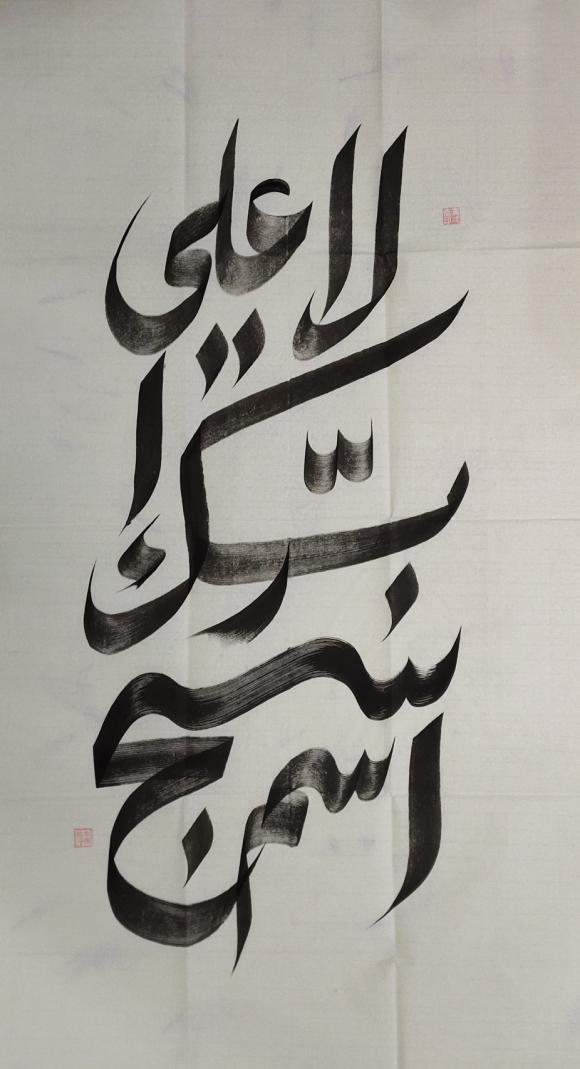 سبح اسم
ربّك ا
لاعلي